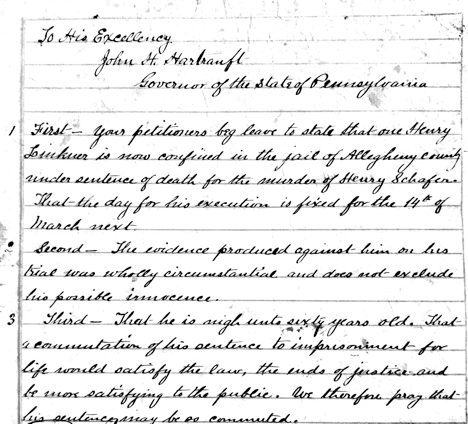 To His Excellency
John H. Hartranft
Governor of the State of Pennsylvania
1 First – Your petitioners beg leave to state that one Henry
Linkner is now confined in the jail of Allegheny county
under sentence of death for the murder of Henry Schafer.
That the day for his execution is fixed for the 14th of
March next
2 Second – The evidence produced against him on his
trial was wholly circumstantial and does not exclude
his possible innocence.
3 Third – That he is nigh unto sixty years old. That
a commutation of his sentence to imprisonment for
life would satisfy the law, the ends of justice and
be more satisfying to the public. We therefore pray that
his sentence may be so commuted.